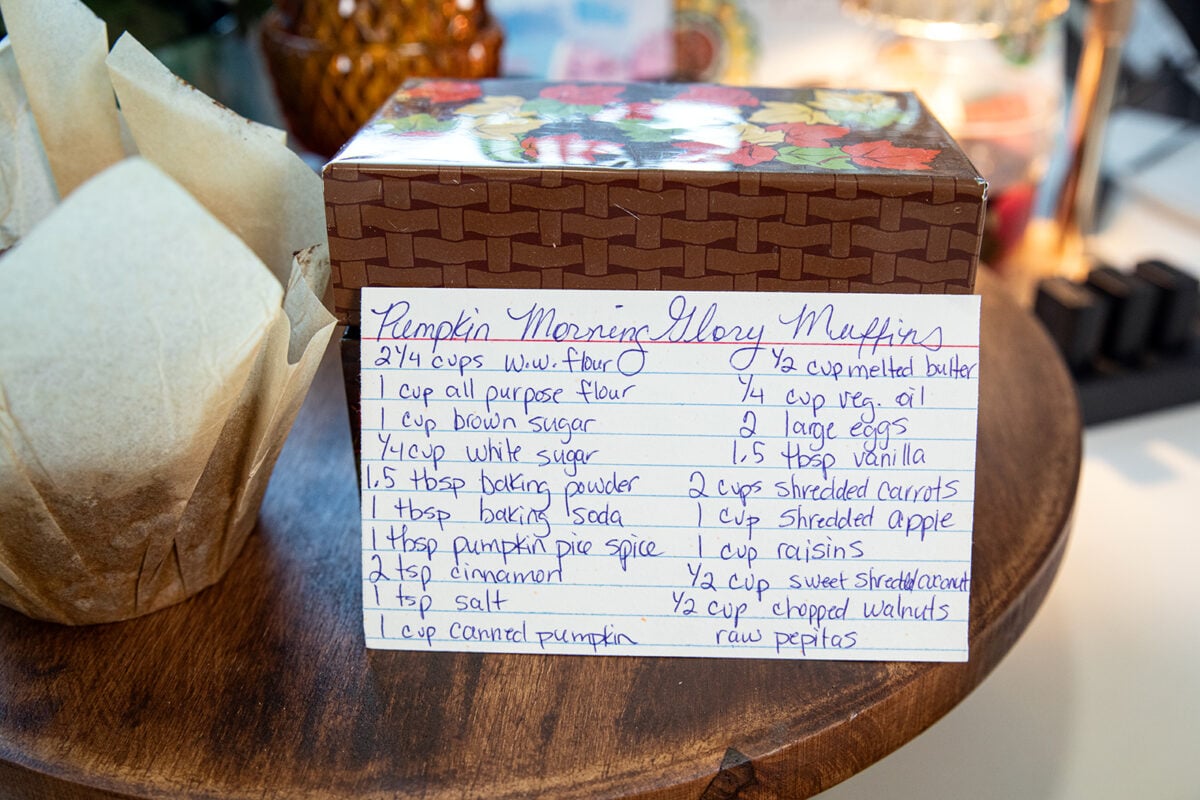 Pumpkin Morning Glory Muffins
2 1/4 cups w.w. flour
1 cup all purpose flour
1 cup brown sugar
1/4 cup white sugar
1.5 tbsp baking powder
1 tbsp baking soda
1 tbsp pumpkin pice spice
2 tsp cinnamon
1 tsp salt
1 cup canned pumpkin
1/2 cup melted butter
1/4 cup veg. oil
2 large eggs
1.5 tbsp vanilla
2 cups shredded carrots
1 cup shredded apple
1 cup raisins
1/2 cup sweet shredded coconut
1/2 cup chopped walnuts
raw pepitas